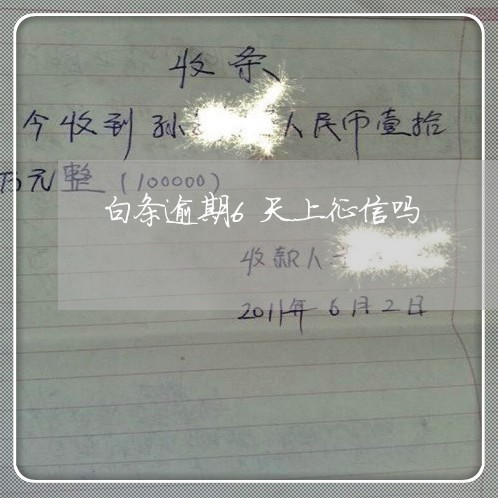 收条
今收到孙 人民币壹拾
万元整(100000)
白条逾期6天上征信吗
收款人
2011年6月2日